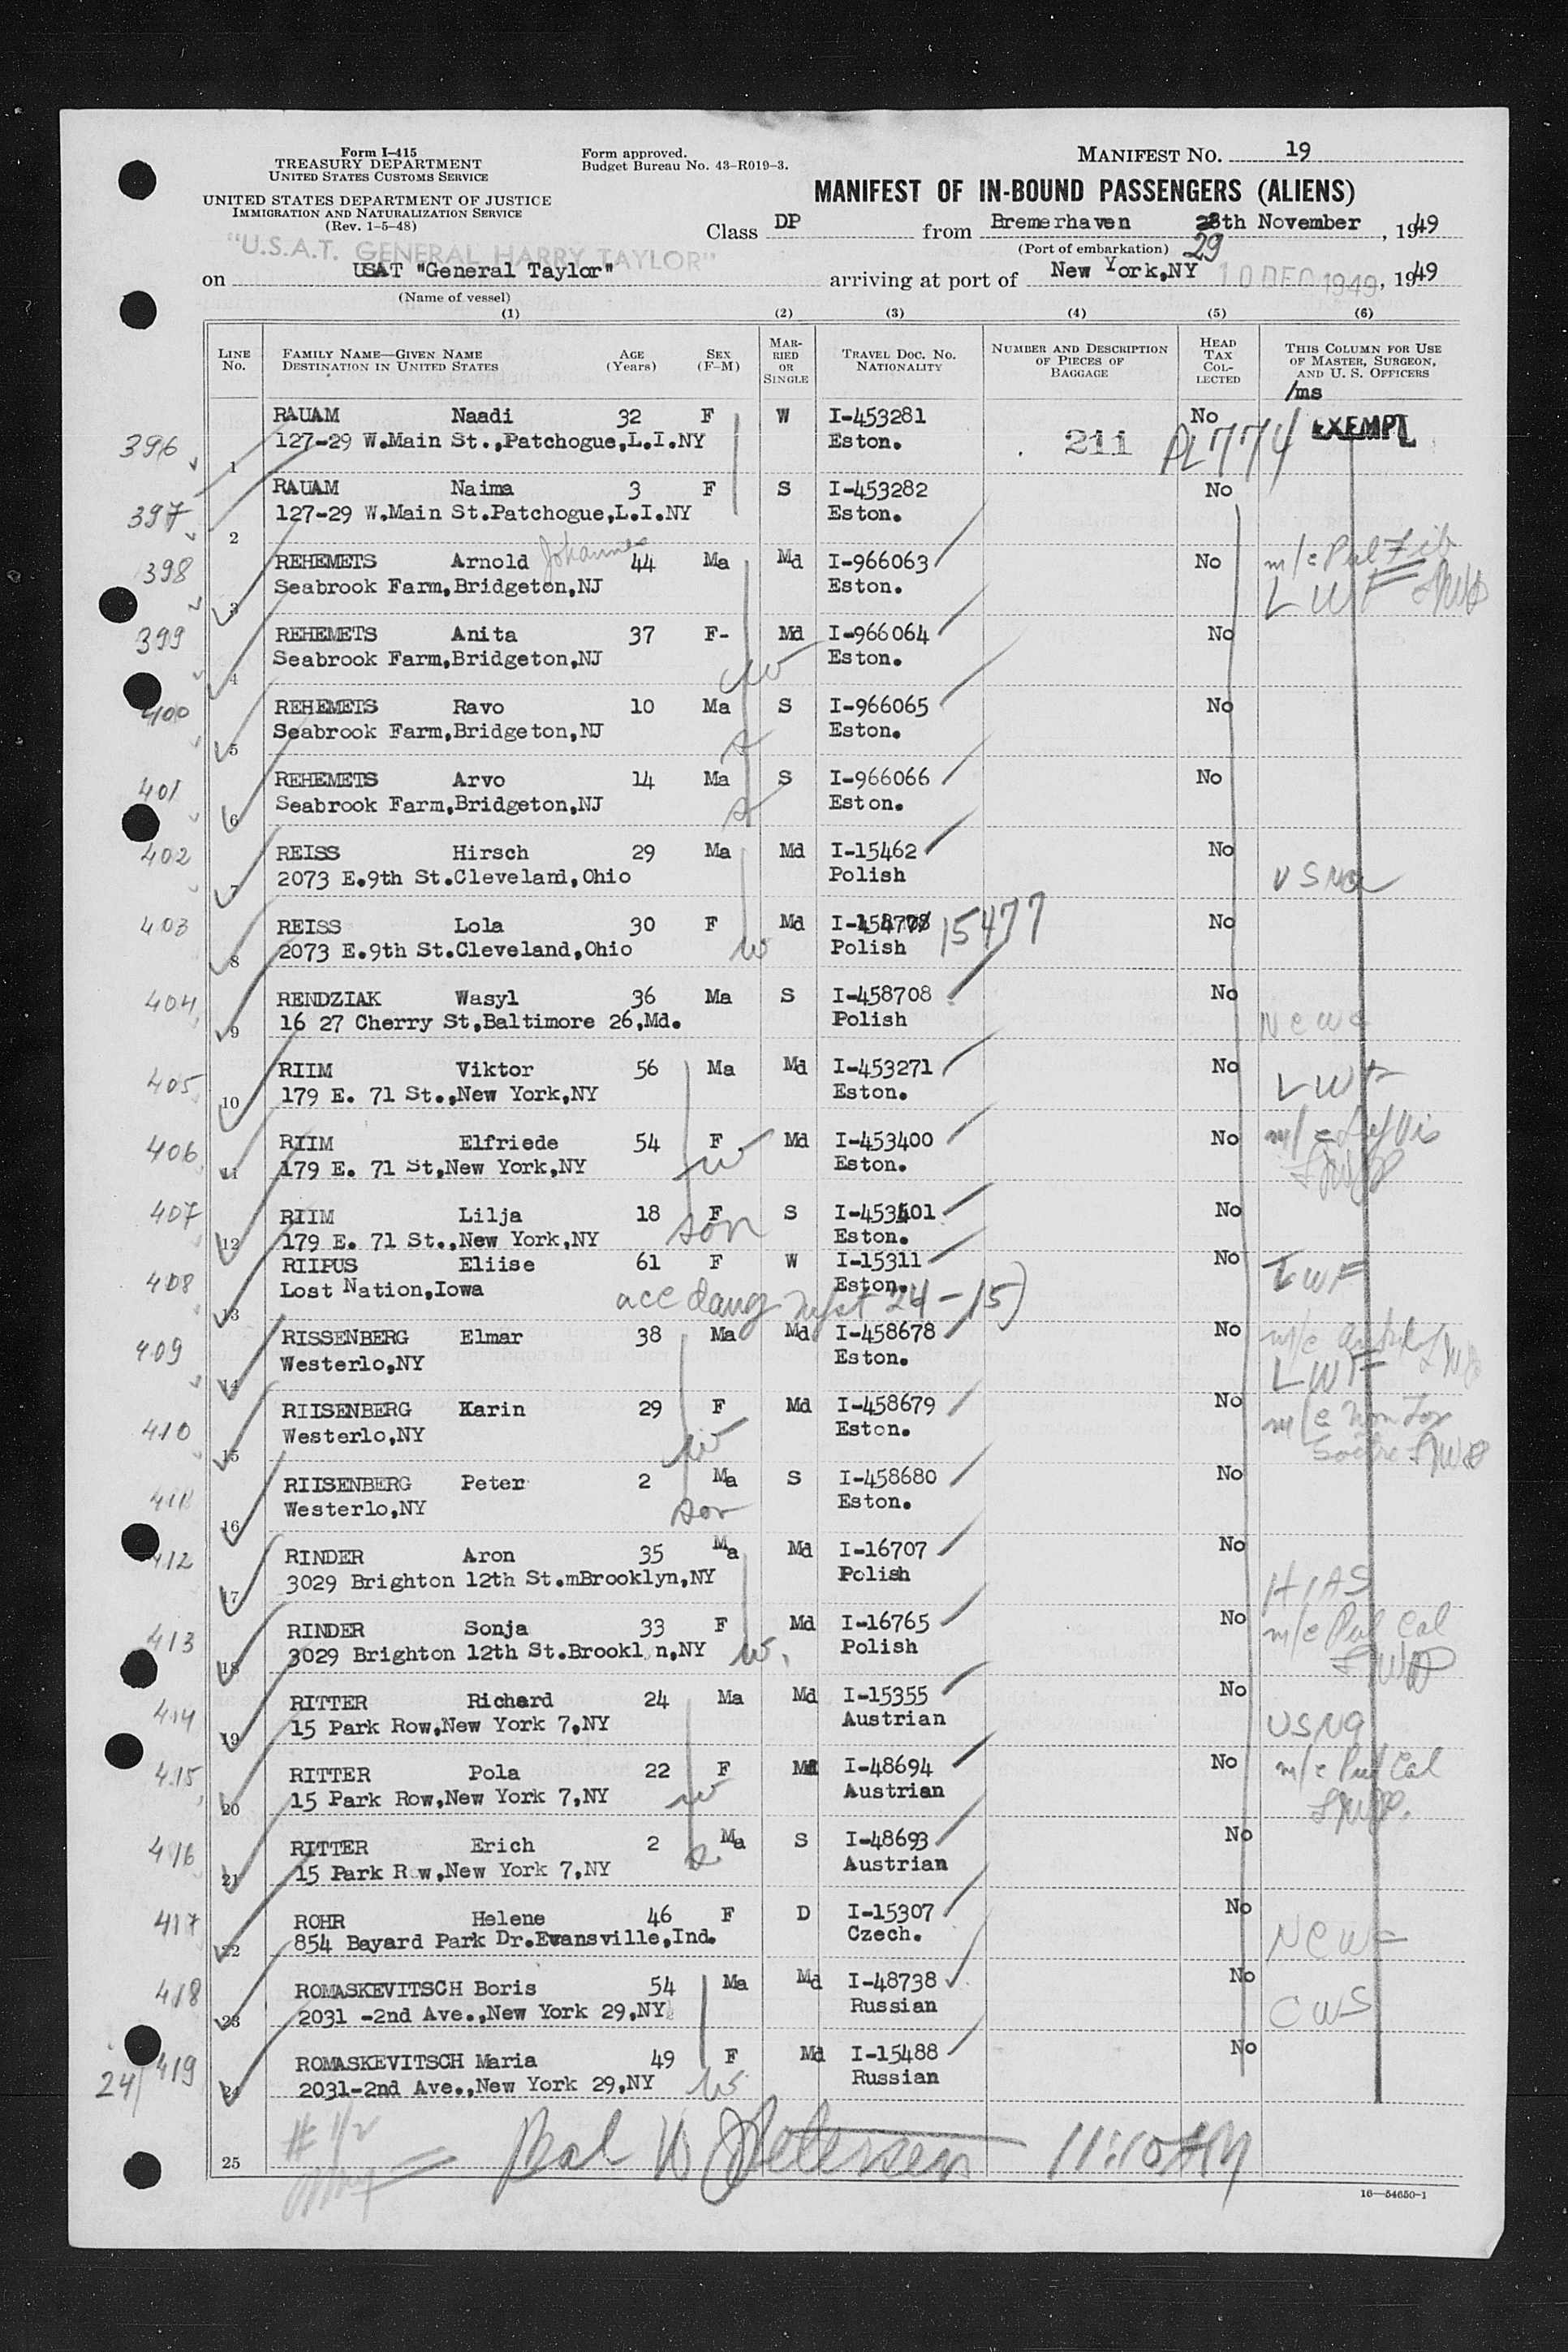 Form I-415
TREASURY DEPARTMENT
UNITED STATES CUSTOMS SERVICE
UNITED STATES DEPARTMENT OF JUSTICE
IMMIGRATION AND NATURALIZATION SERVICE
(Rev. 1-5-48)
Form approved.
Budget Bureau No. 43-R019-3.
MANIFEST NO. 19
MANIFEST OF IN-BOUND PASSENGERS (ALIENS)
Class DP from Bremerhaven 28th November, 1949
(Port of embarkation) 29
"U.S.A.T. GENERAL HARRY TAYLOR"
on USAT "General Taylor" arriving at port of New York,NY 10 DEC 1949, 1949
(Name of vessel)
(1) (2) (3) (4) (5) (6)
LINE No. FAMILY NAME—GIVEN NAME DESTINATION IN UNITED STATES AGE (Years) SEX (F-M) MARRIED OR SINGLE TRAVEL DOC. NO. NATIONALITY NUMBER AND DESCRIPTION OF PIECES OF BAGGAGE HEAD TAX COLLECTED THIS COLUMN FOR USE OF MASTER, SURGEON, AND U. S. OFFICERS
/ms
396 1 RAUAM Naadi 32 F W I-453281 No EXEMPT
127-29 W.Main St.,Patchogue,L.I.NY Eston. 211 PL 774
397 2 RAUAM Naima 3 F S I-453282 No
127-29 W.Main St.Patchogue,L.I.NY Eston.
398 3 REHEMETS Arnold Johannes 44 Ma Md I-966063 No m/c Pul Fib
Seabrook Farm,Bridgeton,NJ Eston. LWF
399 4 REHEMETS Anita 37 F- Md I-966064 No
Seabrook Farm,Bridgeton,NJ w Eston.
400 5 REHEMETS Ravo 10 Ma S I-966065 No
Seabrook Farm,Bridgeton,NJ s Eston.
401 6 REHEMETS Arvo 14 Ma S I-966066 No
Seabrook Farm,Bridgeton,NJ s Eston.
402 7 REISS Hirsch 29 Ma Md I-15462 No
2073 E.9th St.Cleveland,Ohio Polish USNA
403 8 REISS Lola 30 F Md 15477 No
2073 E.9th St.Cleveland,Ohio w Polish
404 9 RENDZIAK Wasyl 36 Ma S I-458708 No
16 27 Cherry St,Baltimore 26,Md. Polish NCWC
405 10 RIIM Viktor 56 Ma Md I-453271 No LWF
179 E. 71 St.,New York,NY Eston.
406 11 RIIM Elfriede 54 F Md I-453400 No m/c Def Vis
179 E. 71 St,New York,NY w Eston.
407 12 RIIM Lilja 18 F S I-453401 No
179 E. 71 St.,New York,NY son Eston.
408 13 RIIPUS Eliise 61 F W I-15311 No LWF
Lost Nation,Iowa Eston.
acc daug 24-15)
409 14 RISSENBERG Elmar 38 Ma Md I-458678 No m/c
Westerlo,NY Eston. LWF
410 15 RIISENBERG Karin 29 F Md I-458679 No m/c Non Tox
Westerlo,NY w Eston.
411 16 RIISENBERG Peter 2 Ma S I-458680 No
Westerlo,NY son Eston.
412 17 RINDER Aron 35 Ma Md I-16707 No
3029 Brighton 12th St.mBrooklyn,NY Polish HIAS
413 18 RINDER Sonja 33 F Md I-16765 No m/c Pul Cal
3029 Brighton 12th St.Brookl n,NY w. Polish
414 19 RITTER Richard 24 Ma Md I-15355 No
15 Park Row,New York 7,NY Austrian USNA
415 20 RITTER Pola 22 F Md I-48694 No m/c Pul Cal
15 Park Row,New York 7,NY w Austrian
416 21 RITTER Erich 2 Ma S I-48693 No
15 Park R w,New York 7,NY s Austrian
417 22 ROHR Helene 46 F D I-15307 No
854 Bayard Park Dr.Evansville,Ind. Czech. NCWF
418 23 ROMASKEVITSCH Boris 54 Ma Md I-48738 No
2031 -2nd Ave.,New York 29,NY Russian CWS
419 24 ROMASKEVITSCH Maria 49 F Md I-15488 No
24/ 2031-2nd Ave.,New York 29,NY w Russian
25 # 1/2 Petersen 11:10 AM
16—54650-1